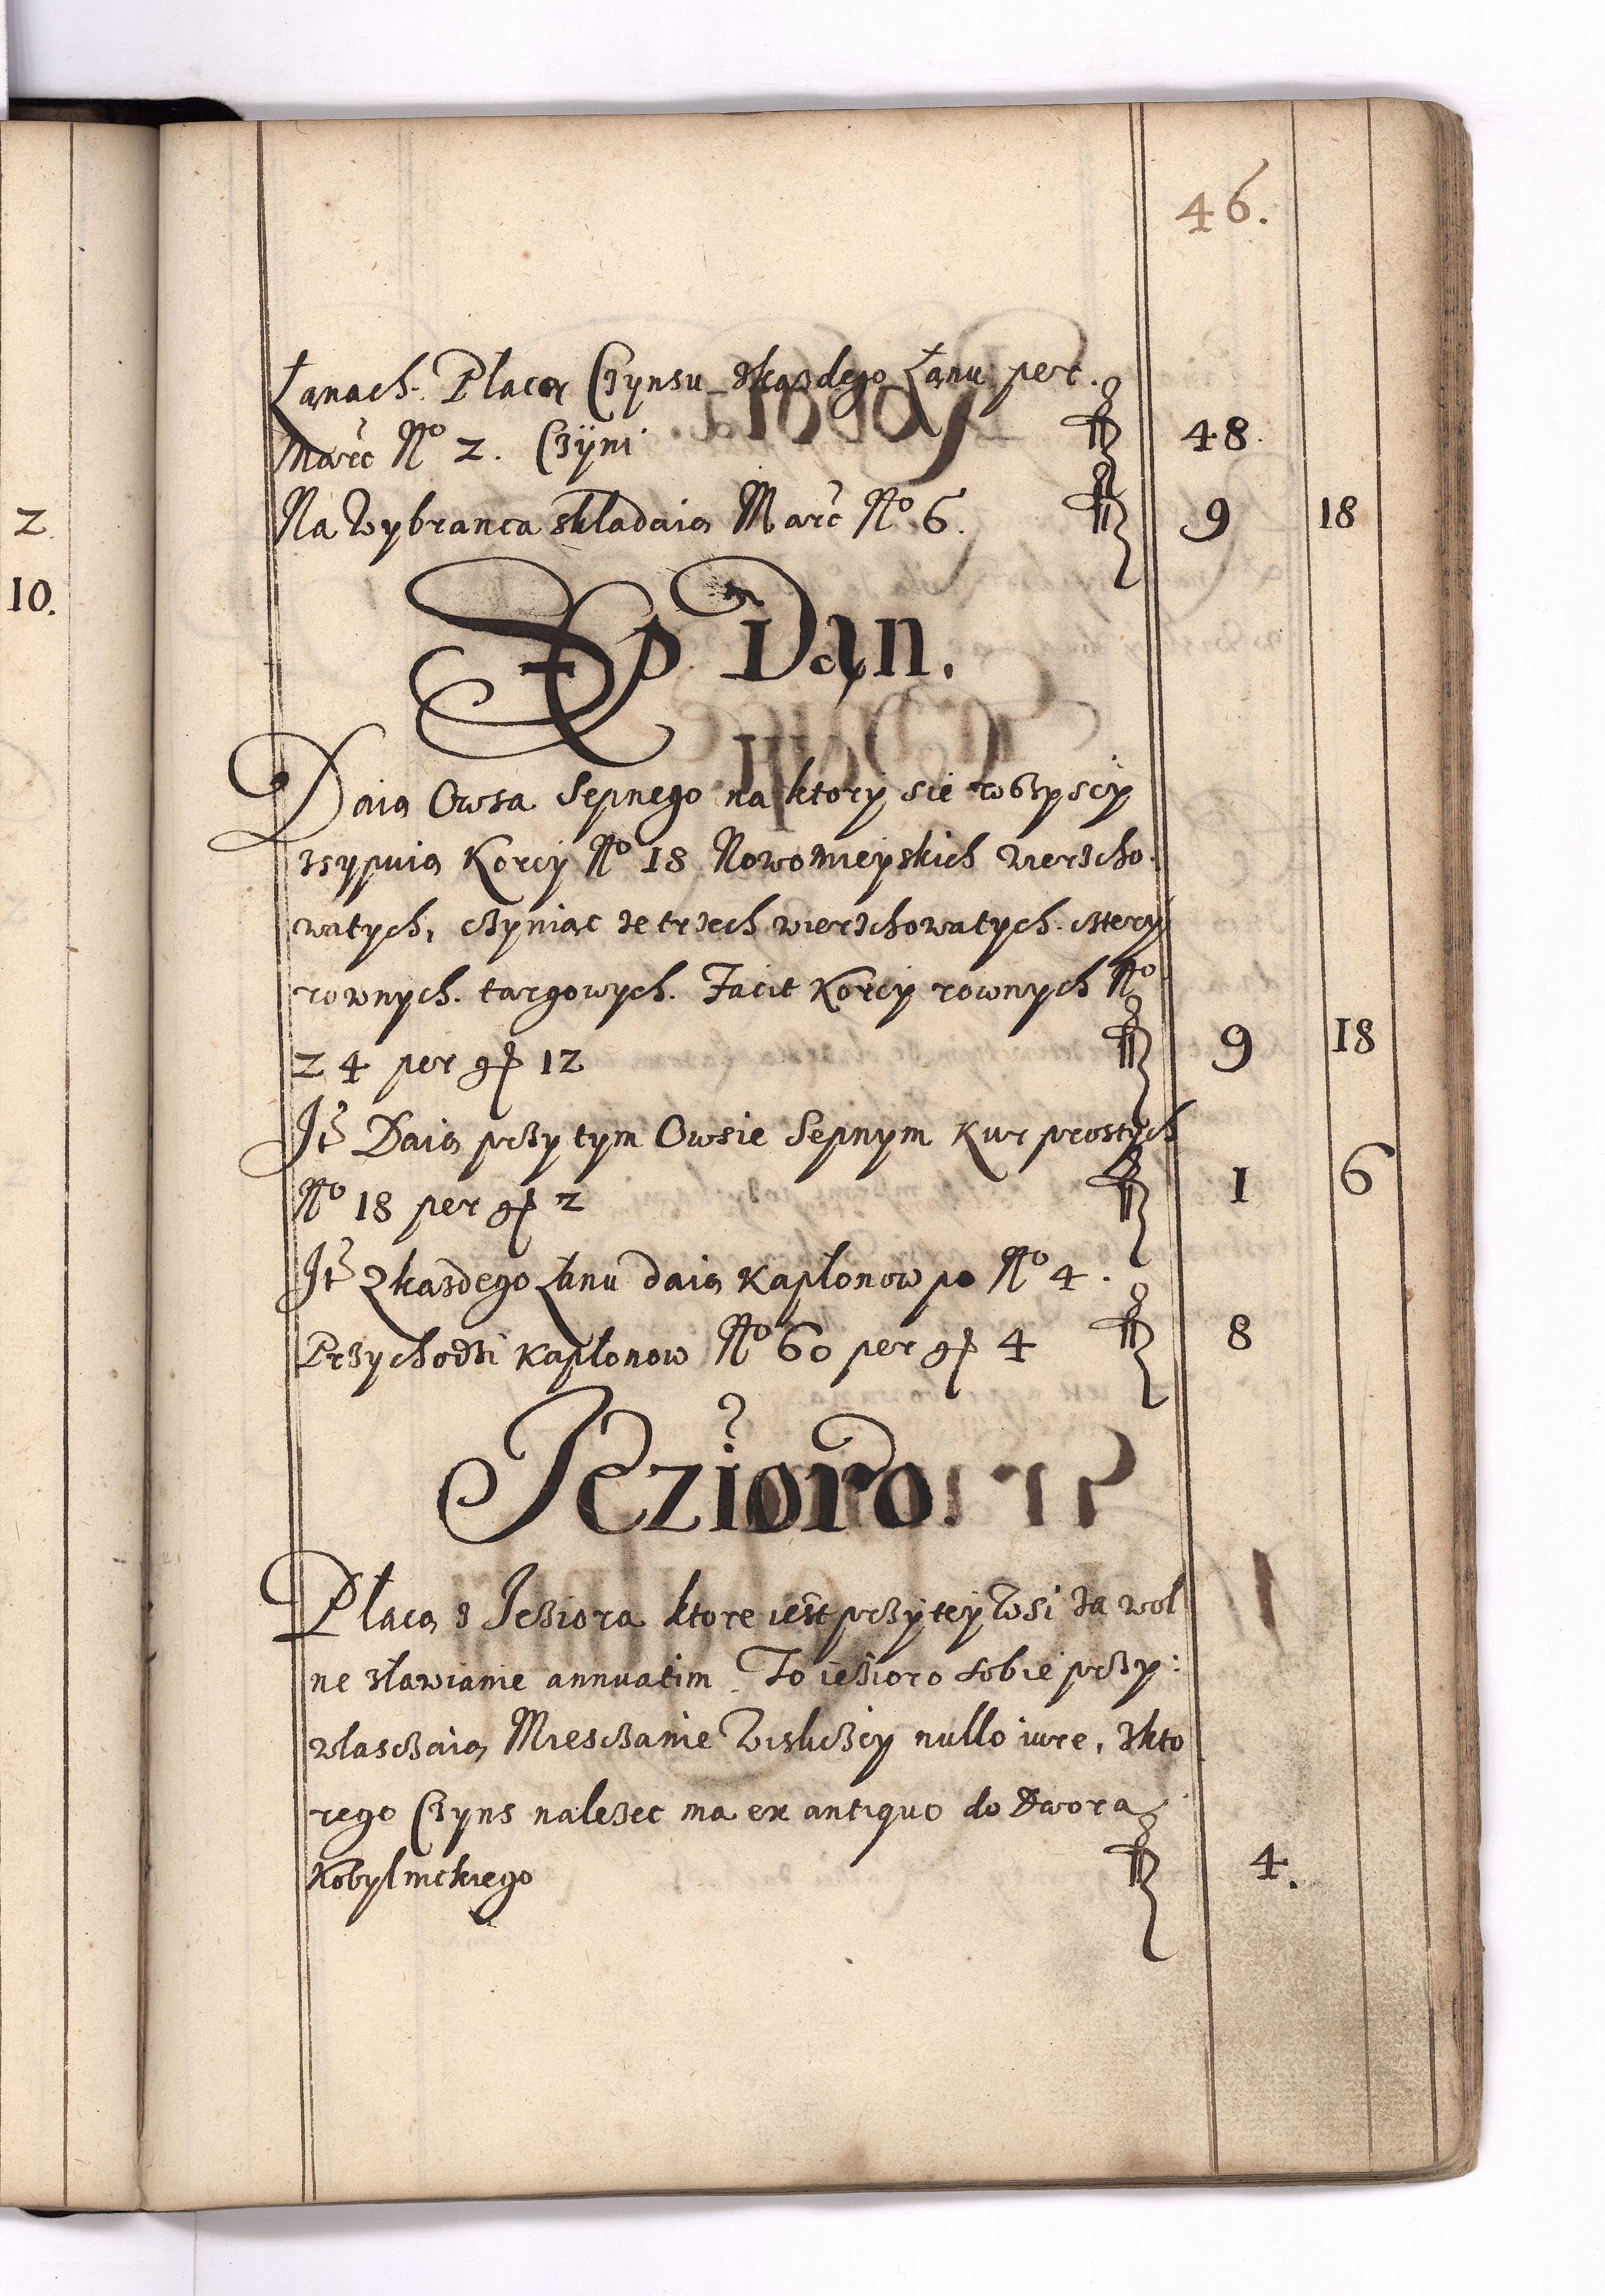 46.
Łanach. Placą Czynsu zkazdego Łanu per
Marc No 2. Czÿni fl 48.
Na Wybranca składaią Marc No 6. fl 9 18
2
10.
Dan.
Daią Owsa Sepnego na ktory sie wszyscy
zsypuią Korcy No 18 Nowomieyskich wierzcho-
watych, czyniąc ze trzech wierzchowatych cztery
rownych targowych. Facit Korcy rownych No
24 per gr 12 fl 9 18
It Daią przy tym Owsie Sepnym Kur prostych
No 18 per gr 2 fl 1 6
It Zkazdego Łanu daią Kapłonow po No 4.
Przychodzi Kapłonow No 60 per gr 4 fl 8
Jezioro.
Płacą z Jeziora ktore iest przy tey Wsi za wol
ne zławianie annuatim. To iezioro sobie przy:
własczaią Miesczanie Wisliczcy nullo iure, zkto
rego Czyns nalezec ma ex antiquo do Dwora
Kobylnickiego fl 4.